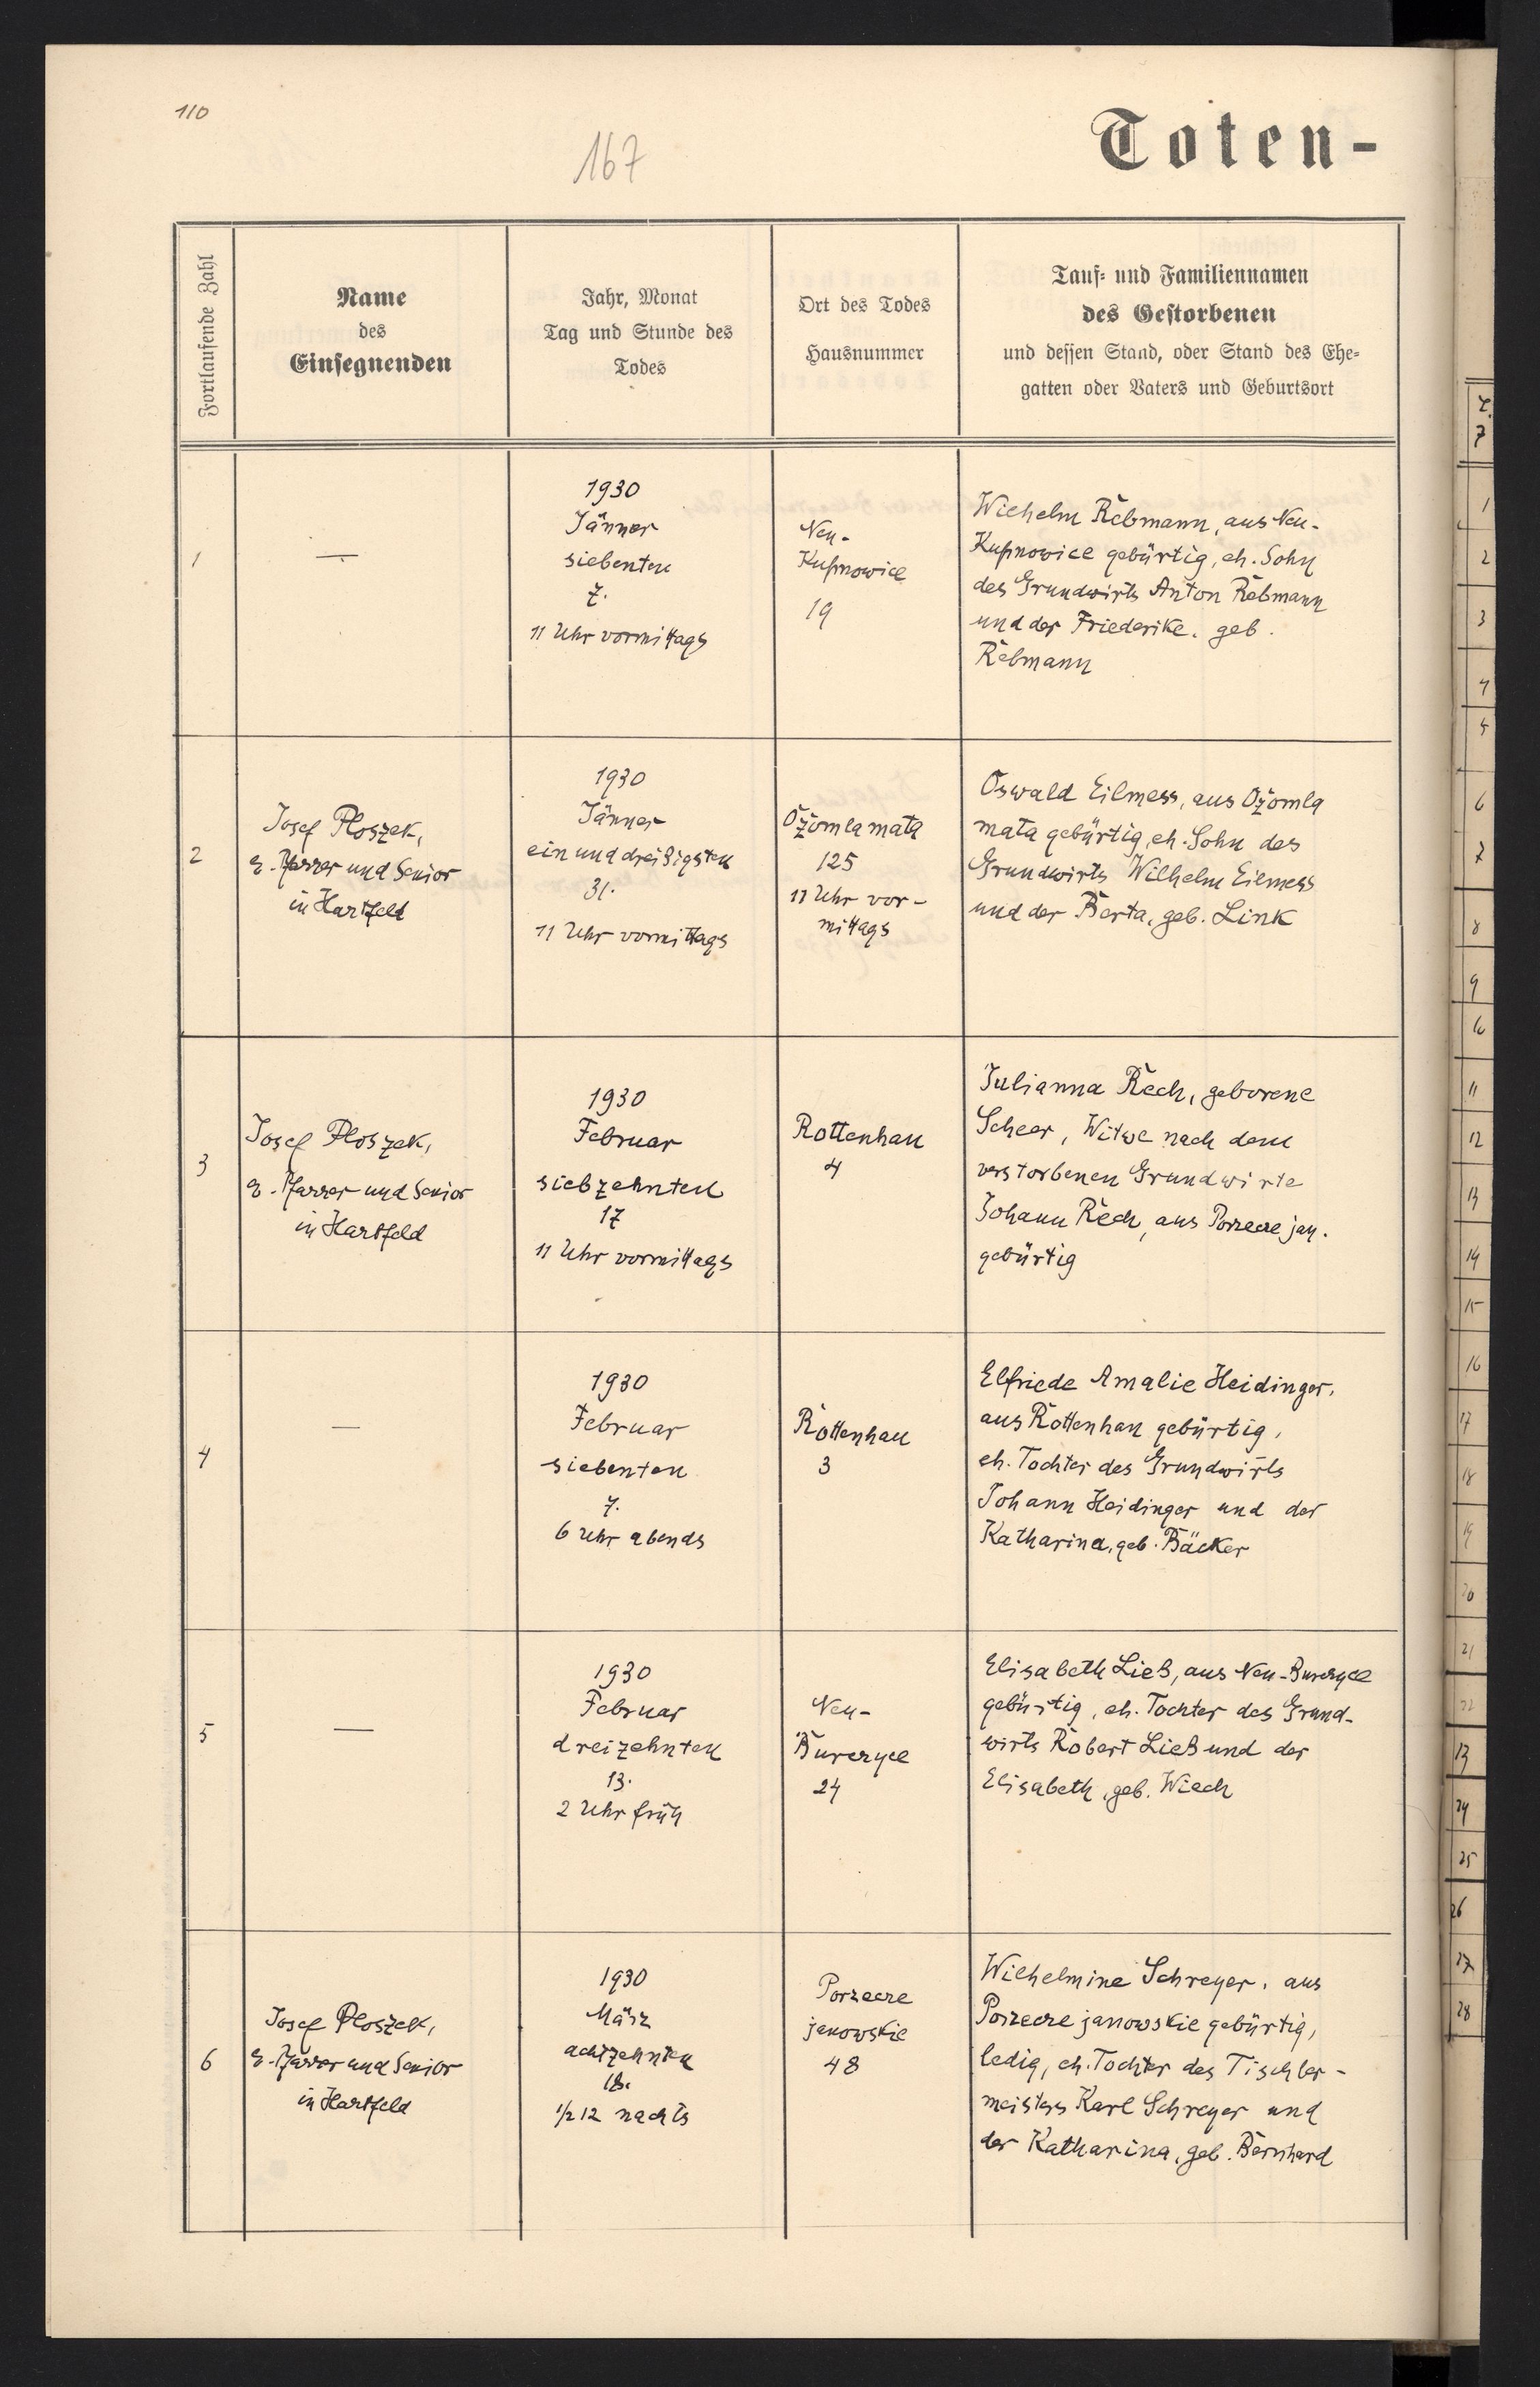 110
167
Toten-
Fortlaufende Zahl
Name
des
Einsegnenden
Jahr, Monat
Tag und Stunde des
Todes
Ort des Todes
Hausnummer
Tauf- und Familiennamen
des Gestorbenen
und dessen Stand, oder Stand des Ehe-
gatten oder Vaters und Geburtsort
1
—
1930
Jänner
siebenten
7.
11 Uhr vormittags
Neu-
Kupnowice
19
Wilhelm Rebmann, aus Neu-
Kupnowice gebürtig, eh. Sohn
des Grundwirts Anton Rebmann
und der Friederike, geb.
Rebmann
2
Josef Ploszek,
e. Pfarrer und Senior
in Hartfeld
1930
Jänner
ein und dreißigsten
31.
11 Uhr vormittags
Ożomla mała
125
11 Uhr vor-
mittags
Oswald Eilmess, aus Ożomla
mała gebürtig, eh. Sohn des
Grundwirts Wilhelm Eilmess
und der Berta, geb. Link
3
Josef Ploszek,
e. Pfarrer und Senior
in Hartfeld
1930
Februar
siebzehnten
17
11 Uhr vormittags
Rottenhan
4
Julianna Rech, geborene
Scheer, Witwe nach dem
verstorbenen Grundwirte
Johann Rech, aus Porzecze jan.
gebürtig
4
—
1930
Februar
siebenten
7.
6 Uhr abends
Rottenhan
3
Elfriede Amalie Heidinger,
aus Rottenhan gebürtig,
eh. Tochter des Grundwirts
Johann Heidinger und der
Katharina, geb. Bäcker
5
—
1930
Februar
dreizehnten
13.
2 Uhr früh
Neu-
Burczyce
24
Elisabeth Ließ, aus Neu-Burczyce
gebürtig, eh. Tochter des Grund-
wirts Robert Ließ und der
Elisabeth, geb. Wiech
6
Josef Ploszek,
e. Pfarrer und Senior
in Hartfeld
1930
März
achtzehnten
18.
1/2 12 nachts
Porzecze
janowskie
48
Wilhelmine Schreyer, aus
Porzecze janowskie gebürtig,
ledig, eh. Tochter des Tischler-
meisters Karl Schreyer und
der Katharina, geb. Bernhard
1
2
3
4
5
6
7
8
9
10
11
12
13
14
15
16
17
18
19
20
21
22
23
24
25
26
27
28